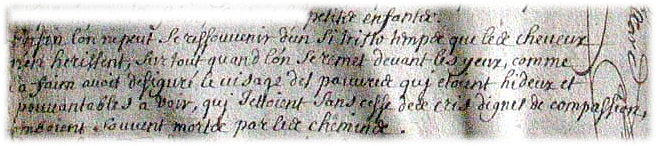 petits enfants.
Enfin l'on ne peut se ressouvenir d'un si triste temps que les cheveux
n'en herissent, surtout quand l'on se remet devant les yeux, comme
la faim avoit defiguré le visage des pauvres qui etoient hideux et
epouvantables a voir, qui jettoient sans cesse des cris dignes de compassion,
tomboient souvent morts par les chemins.